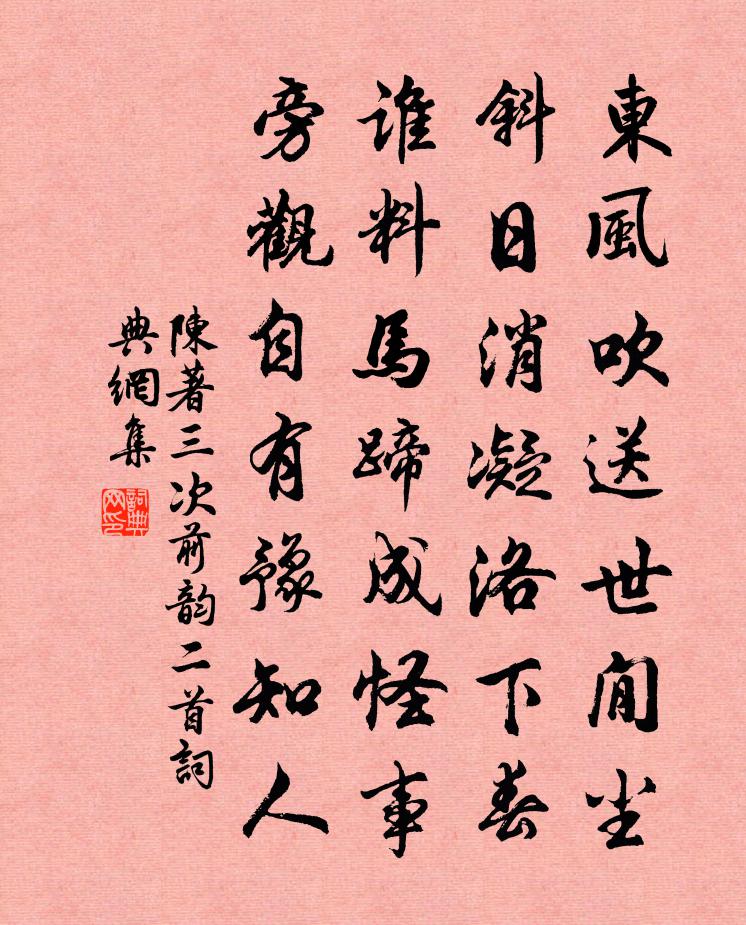 東風吹送世間坐
斜日消凝洛下春
誰料馬蹄成怪事
旁觀自有豫知人
陳著三次前韵二首詞
典網集
詞典網印